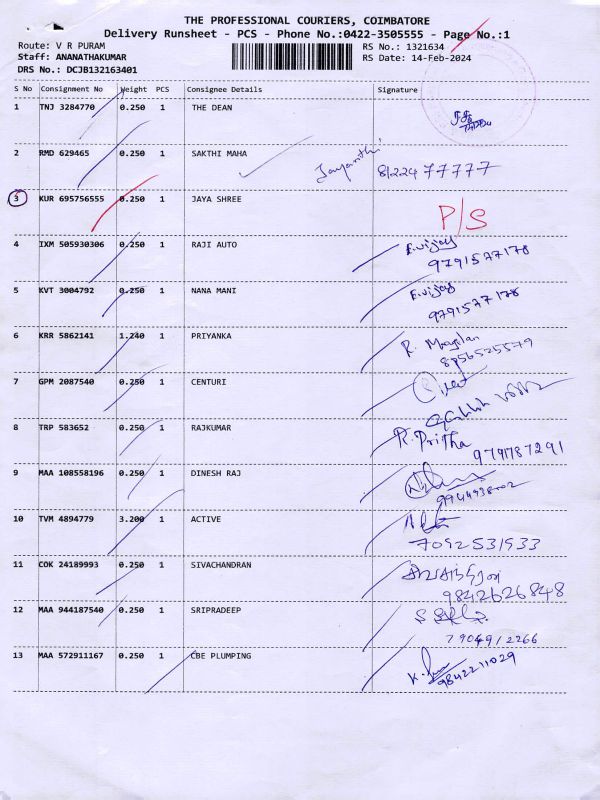 THE PROFESSIONAL COURIERS, COIMBATORE
Delivery Runsheet - PCS - Phone No.:0422-3505555 - Page No.:1
Route: V R PURAM
RS No.: 1321634
Staff: ANANATHAKUMAR
RS Date: 14-Feb-2024
DRS No.: DCJB132163401
S No Consignment No Weight PCS Consignee Details Signature
1 TNJ 3284770 0.250 1 THE DEAN
2 RMD 629465 0.250 1 SAKTHI MAHA Jayanthi 8122477777
3 KUR 695756555 0.250 1 JAYA SHREE P/S
4 IXM 505930306 0.250 1 RAJI AUTO E.vijay
9791577178
5 KVT 3004792 0.250 1 NANA MANI E.vijay
9791577178
6 KRR 5862141 1.240 1 PRIYANKA R.
8956525579
7 GPM 2087540 0.250 1 CENTURI
8 TRP 583652 0.250 1 RAJKUMAR R.Pritha
9791787291
9 MAA 108558196 0.250 1 DINESH RAJ
10 TVM 4894779 3.200 1 ACTIVE
7092531933
11 COK 24189993 0.250 1 SIVACHANDRAN
9842626848
12 MAA 944187540 0.250 1 SRIPRADEEP
7904912266
13 MAA 572911167 0.250 1 CBE PLUMPING
9842211029